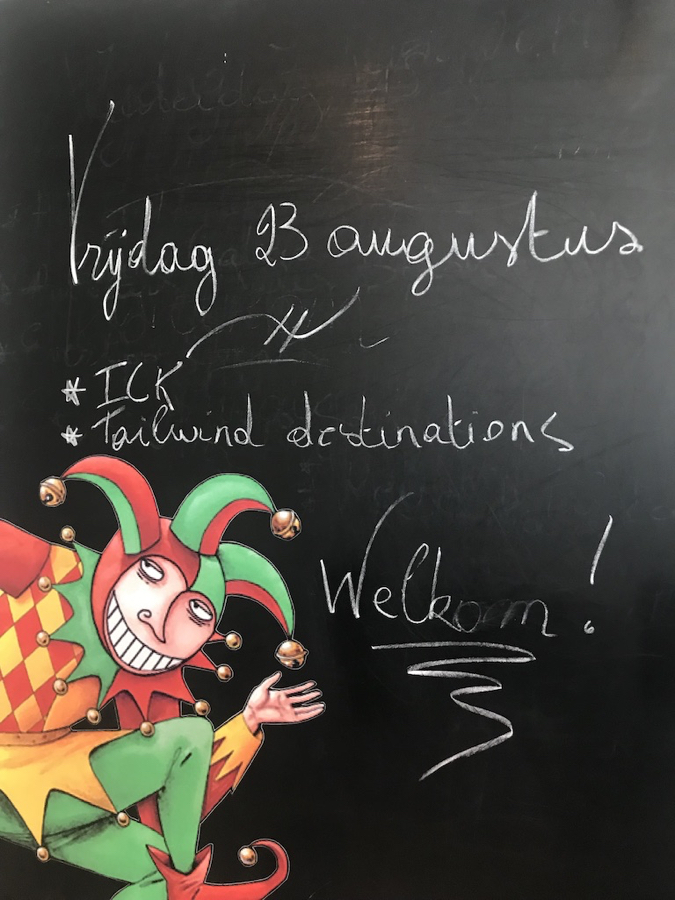 Vrijdag 23 augustus
* ICK
* Tailwind destinations
Welkom!